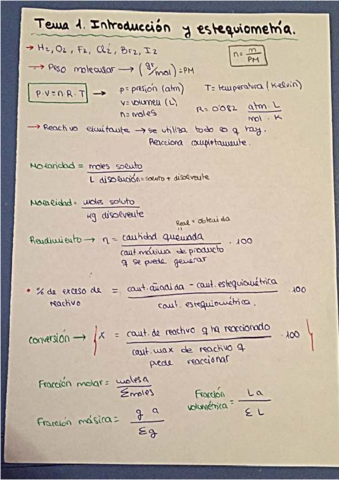 Tema 1. Introducción y estequiometría.
→ H2, O2, F2, Cl2, Br2, I2
n = m / PM
→ Peso molecular → (gr/mol) = PM
P·V = n·R·T → p = presión (atm) T = temperatura (Kelvin)
v = volumen (L) R = 0'082 atm·L / mol·K
n = moles
→ Reactivo limitante → se utiliza todo lo q hay.
Reacciona completamente.
Molaridad = moles soluto / L disolución = soluto + disolvente
Molalidad = moles soluto / kg disolvente
Real = obtenida
Rendimiento → η = cantidad quemada / cant. máxima de producto q se puede generar · 100
• % de exceso de reactivo = cant. añadida - cant. estequiométrica / cant. estequiométrica. · 100
Conversión → X = cant. de reactivo q ha reaccionado / cant. max de reactivo q puede reaccionar · 100
Fracción molar = moles a / Σ moles
Fracción volumétrica = L a / Σ L
Fracción másica = g a / Σ g